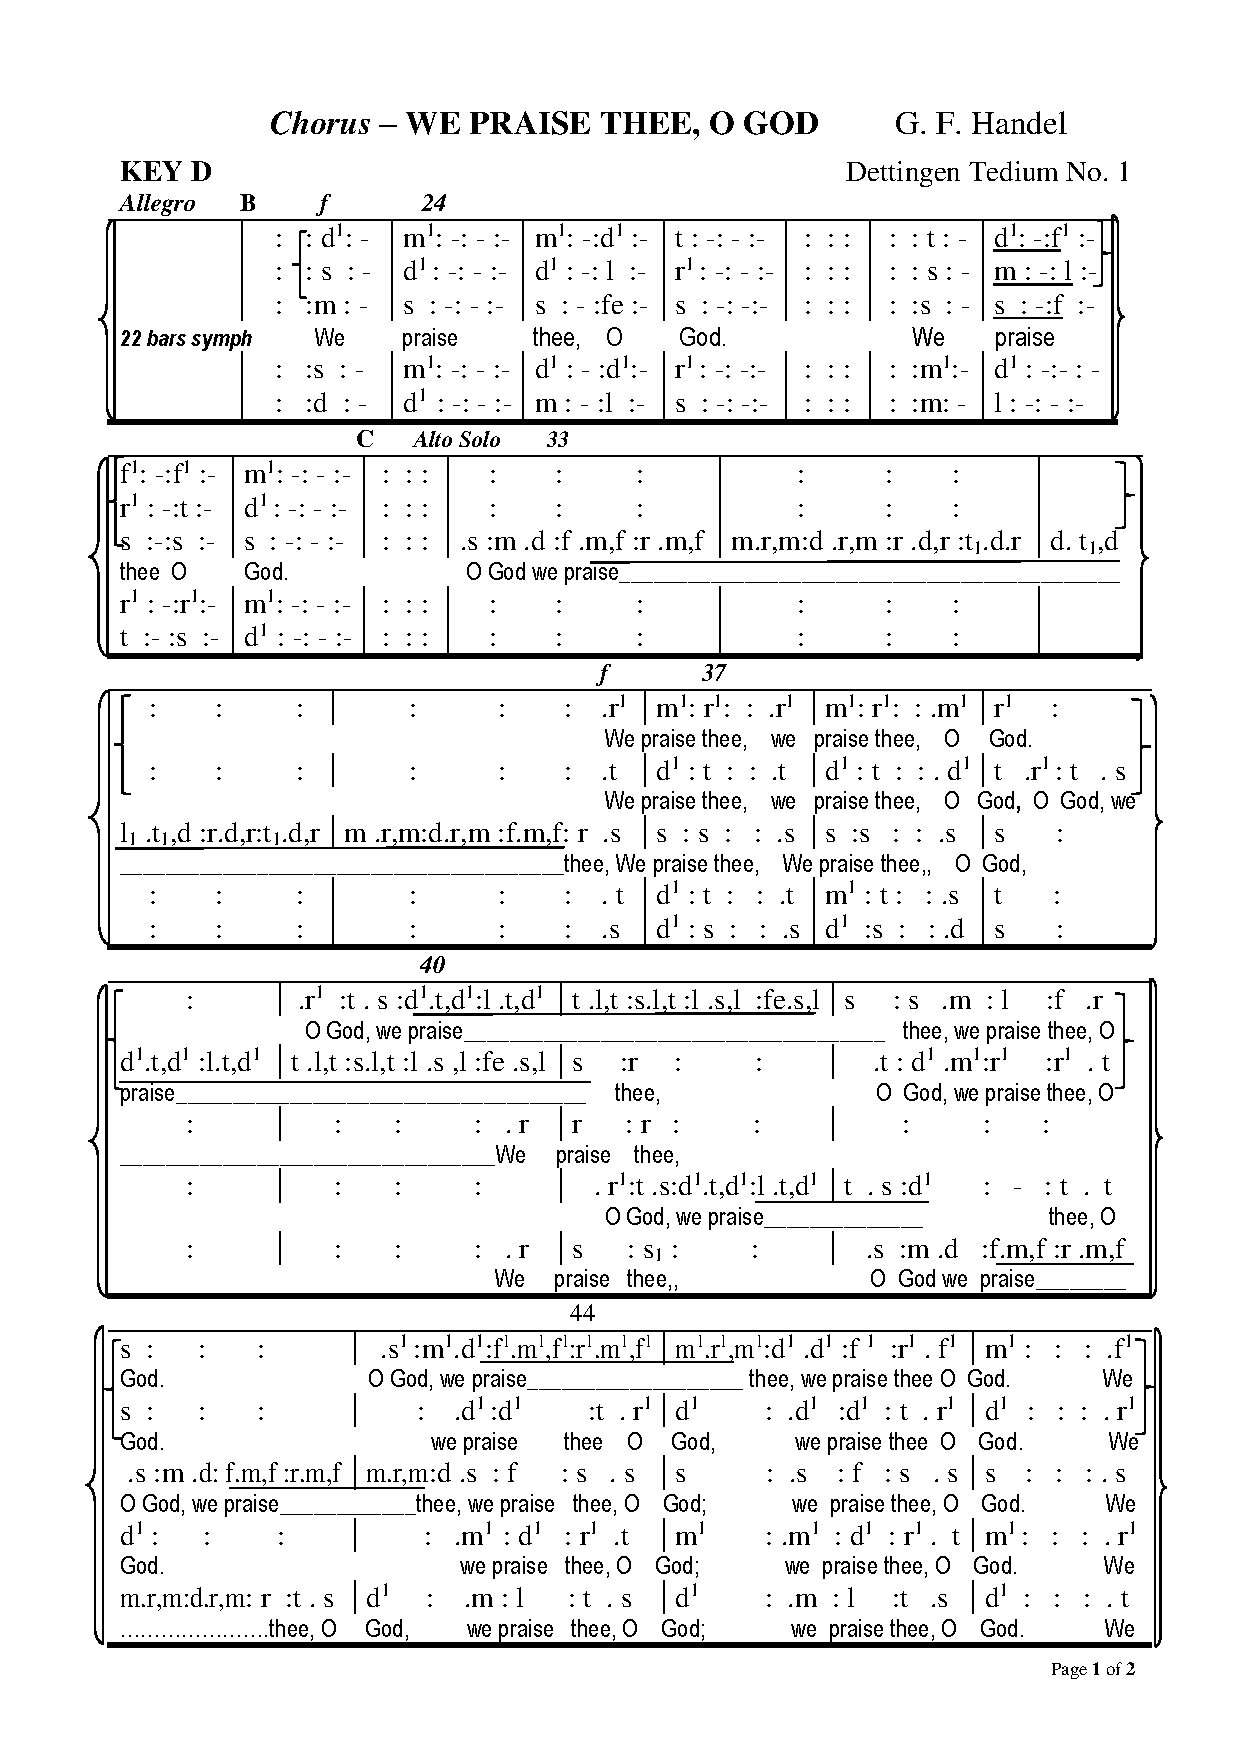 Chorus – WE PRAISE THEE, O GOD G. F. Handel
KEY D Dettingen Tedium No. 1
Allegro B f 24
: : d¹: - | m¹: -: - :- | m¹: -:d¹ :- | t : -: - :- | : : : | : : t : - | d¹: -:f¹ :-
: : s : - | d¹ : -: - :- | d¹ : -: l :- | r¹ : -: - :- | : : : | : : s : - | m : -: l :-
: :m : - | s : -: - :- | s : - :fe :- | s : -: -:- | : : : | : :s : - | s : -:f :-
22 bars symph We praise thee, O God. We praise
: :s : - | m¹: -: - :- | d¹ : - :d¹:- | r¹ : -: -:- | : : : | : :m¹:- | d¹ : -:- : -
: :d : - | d¹ : -: - :- | m : - :l :- | s : -: -:- | : : : | : :m: - | l : -: - :-
C Alto Solo 33
f¹: -:f¹ :- | m¹: -: - :- | : : : | : : : | : : : |
r¹ : -:t :- | d¹ : -: - :- | : : : | : : : | : : : |
s :-:s :- | s : -: - :- | : : : | .s :m .d :f .m,f :r .m,f | m.r,m:d .r,m :r .d,r :t₁.d.r | d. t₁,d
thee O God. O God we praise____
r¹ : -:r¹:- | m¹: -: - :- | : : : | : : : | : : : |
t :- :s :- | d¹ : -: - :- | : : : | : : : | : : : |
f 37
: : : | : : : .r¹ | m¹: r¹: : .r¹ | m¹: r¹: : .m¹ | r¹ :
We praise thee, we praise thee, O God.
: : : | : : : .t | d¹ : t : : .t | d¹ : t : : . d¹ | t .r¹ : t . s
We praise thee, we praise thee, O God, O God, we
l₁ .t₁,d :r.d,r:t₁.d,r | m .r,m:d.r,m :f.m,f: r .s | s : s : : .s | s :s : : .s | s :
____thee, We praise thee, We praise thee,, O God,
: : : | : : : . t | d¹ : t : : .t | m¹ : t : : .s | t :
: : : | : : : .s | d¹ : s : : .s | d¹ :s : : .d | s :
40
: | .r¹ :t . s :d¹.t,d¹:l .t,d¹ | t .l,t :s.l,t :l .s,l :fe.s,l | s : s .m : l :f .r
O God, we praise____ thee, we praise thee, O
d¹.t,d¹ :l.t,d¹ | t .l,t :s.l,t :l .s ,l :fe .s,l | s :r : : | .t : d¹ .m¹:r¹ :r¹ . t
praise____ thee, O God, we praise thee, O
: | : : : . r | r : r : : | : : :
____We praise thee,
: | : : : | . r¹:t .s:d¹.t,d¹:l .t,d¹ | t . s :d¹ : - : t . t
O God, we praise____ thee, O
: | : : : . r | s : s₁ : : | .s :m .d :f.m,f :r .m,f
We praise thee,, O God we praise____
44
s : : : | .s¹ :m¹.d¹:f¹.m¹,f¹:r¹.m¹,f¹ | m¹.r¹,m¹:d¹ .d¹ :f ¹ :r¹ . f¹ | m¹ : : : .f¹
God. O God, we praise____ thee, we praise thee O God. We
s : : : | : .d¹ :d¹ :t . r¹ | d¹ : .d¹ :d¹ : t . r¹ | d¹ : : : . r¹
God. we praise thee O God, we praise thee O God. We
.s :m .d: f.m,f :r.m,f | m.r,m:d .s : f : s . s | s : .s : f : s . s | s : : : . s
O God, we praise____thee, we praise thee, O God; we praise thee, O God. We
d¹ : : : | : .m¹ : d¹ : r¹ .t | m¹ : .m¹ : d¹ : r¹ . t | m¹ : : : . r¹
God. we praise thee, O God; we praise thee, O God. We
m.r,m:d.r,m: r :t . s | d¹ : .m : l : t . s | d¹ : .m : l :t .s | d¹ : : : . t
......................thee, O God, we praise thee, O God; we praise thee, O God. We
Page 1 of 2